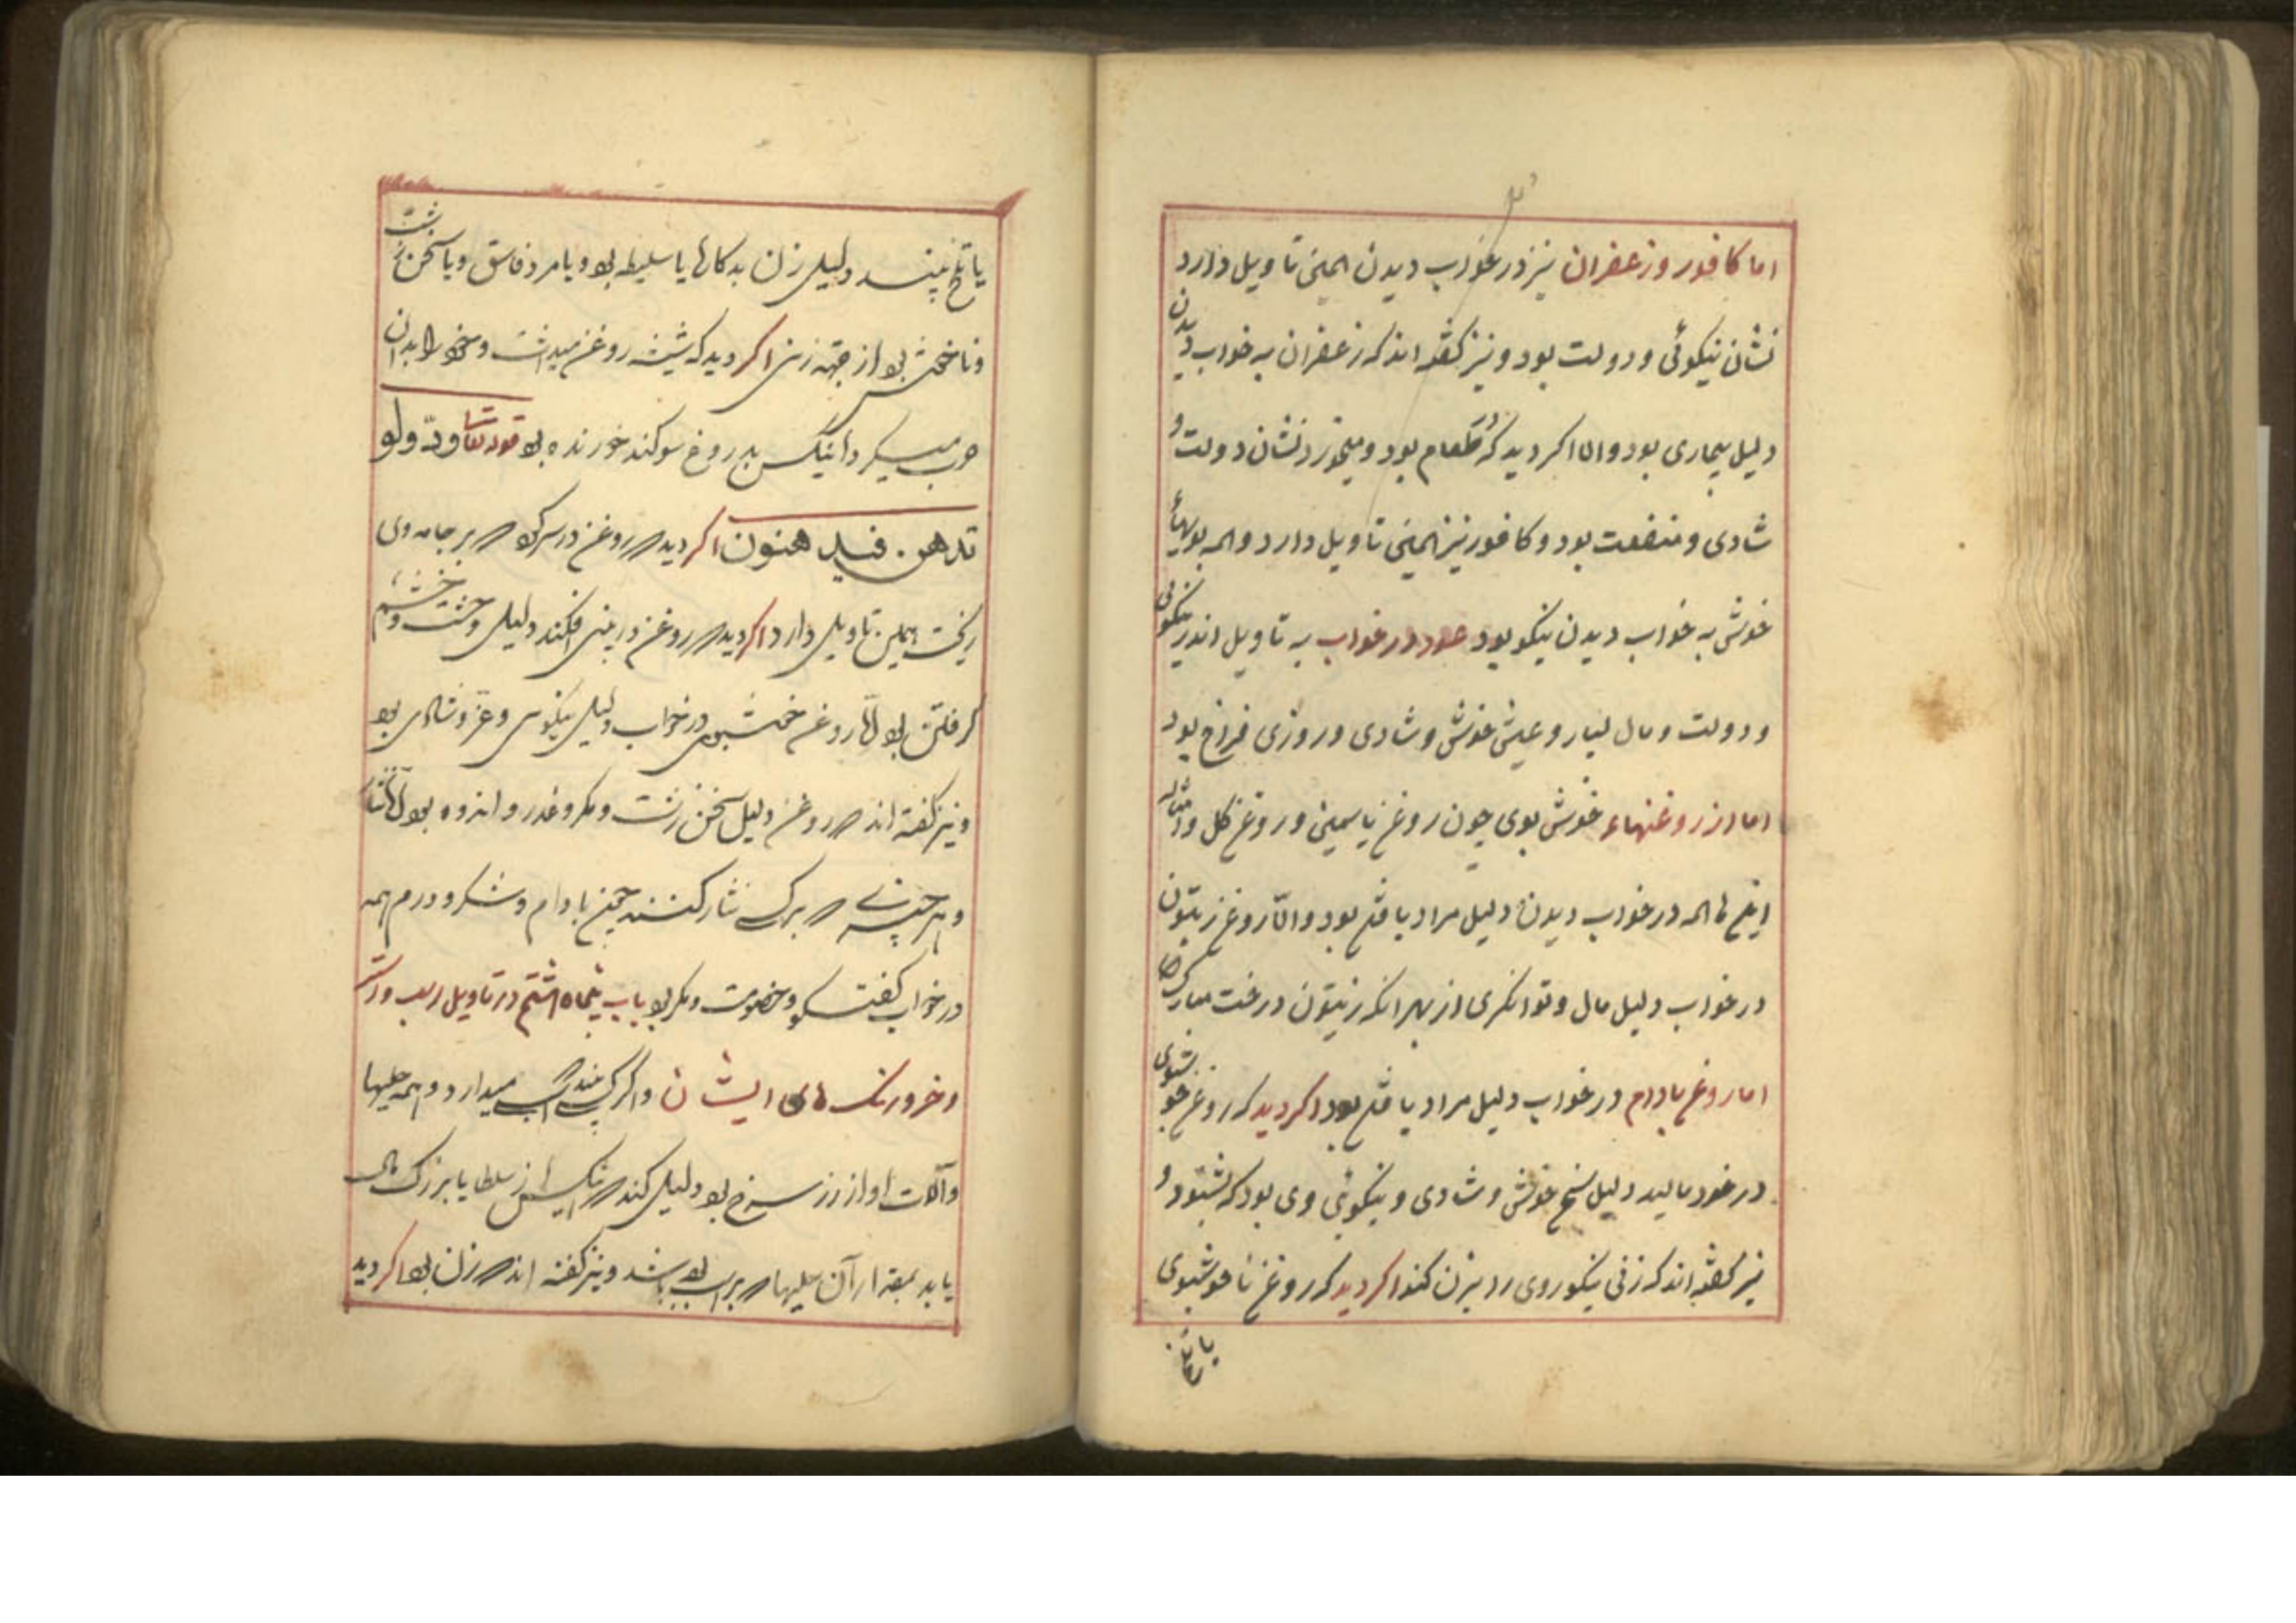 اما کافور و زعفران نیز در خواب دیدن همین تاویل دارد
نشان نیکوئی و دولت بود و نیز گفته اند که زعفران به خواب دیدن
دلیل بیماری بود و الا اکر دید که در طعام بود و میخورد نشان دولت و
شادی و منفعت بود و کافور نیز همین تاویل دارد و همه بویهاء
خوش به خواب دیدن نیکو بود عود در خواب به تاویل اندر نیکوئی
و دولت و مال بسیار و عیش خوش و شادی و روزی فراخ بود
اما از روغنهاء خوش بوی چون روغن یاسمین و روغن کل و
اینها همه در خواب دیدن دلیل مراد یافتن بود و الّا روغن زیتون
در خواب دلیل مال و توانکری از بهر انکه زیتون درخت مبارک
اما روغن بادام در خواب دلیل مراد یافتن بود اکر دید که روغن خوشبوی
در خود مالید دلیل سخن خوش و شادی و نیکوئی وی بود که بشنود و
نیز گفته اند که زنی نیکوروی را بزن کند اکر دید که روغن ناخوشبوی
یا تلخ
یا تلخ بیند دلیل زن بدکار یا سلیطه بود و یا مرد فاسق و یا سخن زشت
و ناخوش بود از جهة زن اکر دید که شیشه روغن میداشت و خود را بدان
چرب میکرد آنکس بدروغ سوکند خورنده بود قوله تعا ودّوا لو
تدهن فیدهنون اکر دید که روغن در سر کرد که بر جامه وی
ریخت همین تاویل دارد اکر دید که روغن در بینی افکند دلیل وحشت و خشم
گرفتن بود امّا روغن خوشبوی در خواب دلیل نیکویی و عز و شادی بود
و نیز گفته اند که روغن دلیل سخن زشت و مکر و غدر و اندوه بود
و هر چیزی که بر کسی نثار کنند چون بادام و شکر و درم همه
در خواب گفت و کو و خصومت و مکر بود باب پنجاه هشتم در تاویل اسب و استر
و خر و رنک های ایشان و اگر کسی بیند که اسب میدارد و همه حلیها
و آلات او از زر سرخ بود دلیل کند که آنکس از سلطان یا بزرگ مال
یابد بمقدار آن حلیها که بر اسب بود باشد و نیز گفته اند که زن بود اکر دید